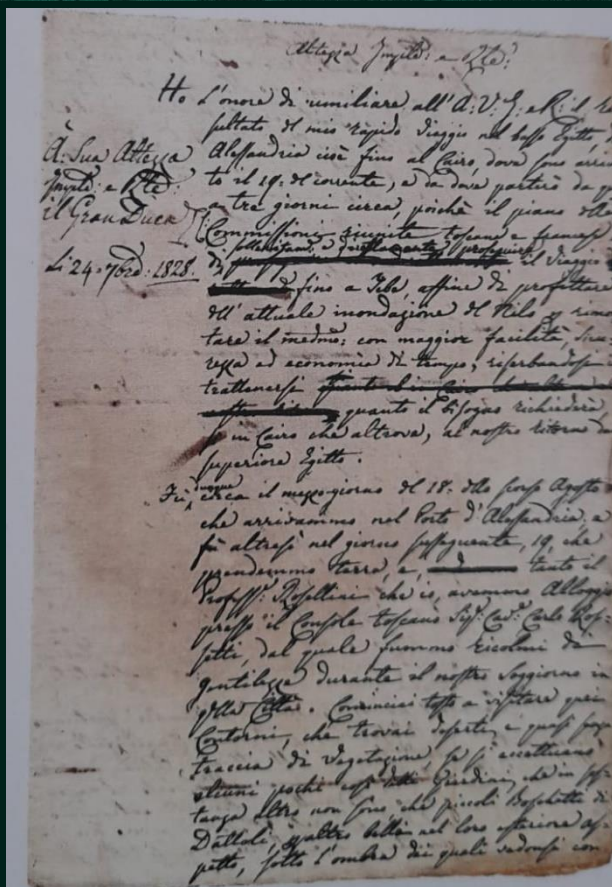 Altezza Imple: e Rle:
Ho l'onore di umiliare all'A: V: I: e R: il re
sultato del mio rapido viaggio nel basso Egitto,
A: Sua Altezza
Imple: e Rle:
il Gran Duca
li 24. 7bre: 1828.
Alessandria cioè fino al Cairo, dove sono arriva
to il 19. del corrente, e da dove partirò da
a tre giorni circa, poichè il piano delle
Commissioni riunite toscana e francese
di proseguire il viaggio
fino a Tebe, affine di profittare
dell'attuale inondazione del Nilo p rimon
tare il medmo: con maggior facilità, sicu
rezza ed economia di tempo; riserbandosi
trattenersi
quanto il bisogno richiederà
in Cairo che altrove, al nostro ritorno da
superiore Egitto.
Fù dunque circa il mezzogiorno del 18. dello scorso Agosto
che arrivammo nel Porto d'Alessandria, e
fù altresì nel giorno susseguente, 19, che
prendemmo terra, e, tanto il
Profess: Rosellini che io, avemmo Alloggio
presso il Console toscano Sigr. Cavr. Carlo Ros=
setti, dal quale fummo ricolmi di
gentilezze durante il nostro soggiorno in
qlla Città. Cominciai tosto a visitare quei
Contorni, che trovai deserti, e quasi senza
traccia di vegetazione, se si eccettuano
alcuni pochi Giardini, che in sos
tanza altro non sono che piccoli Boschetti di
Dattoli, nel loro esteriore as=
petto, sotto l'ombra dei quali vedonsi con